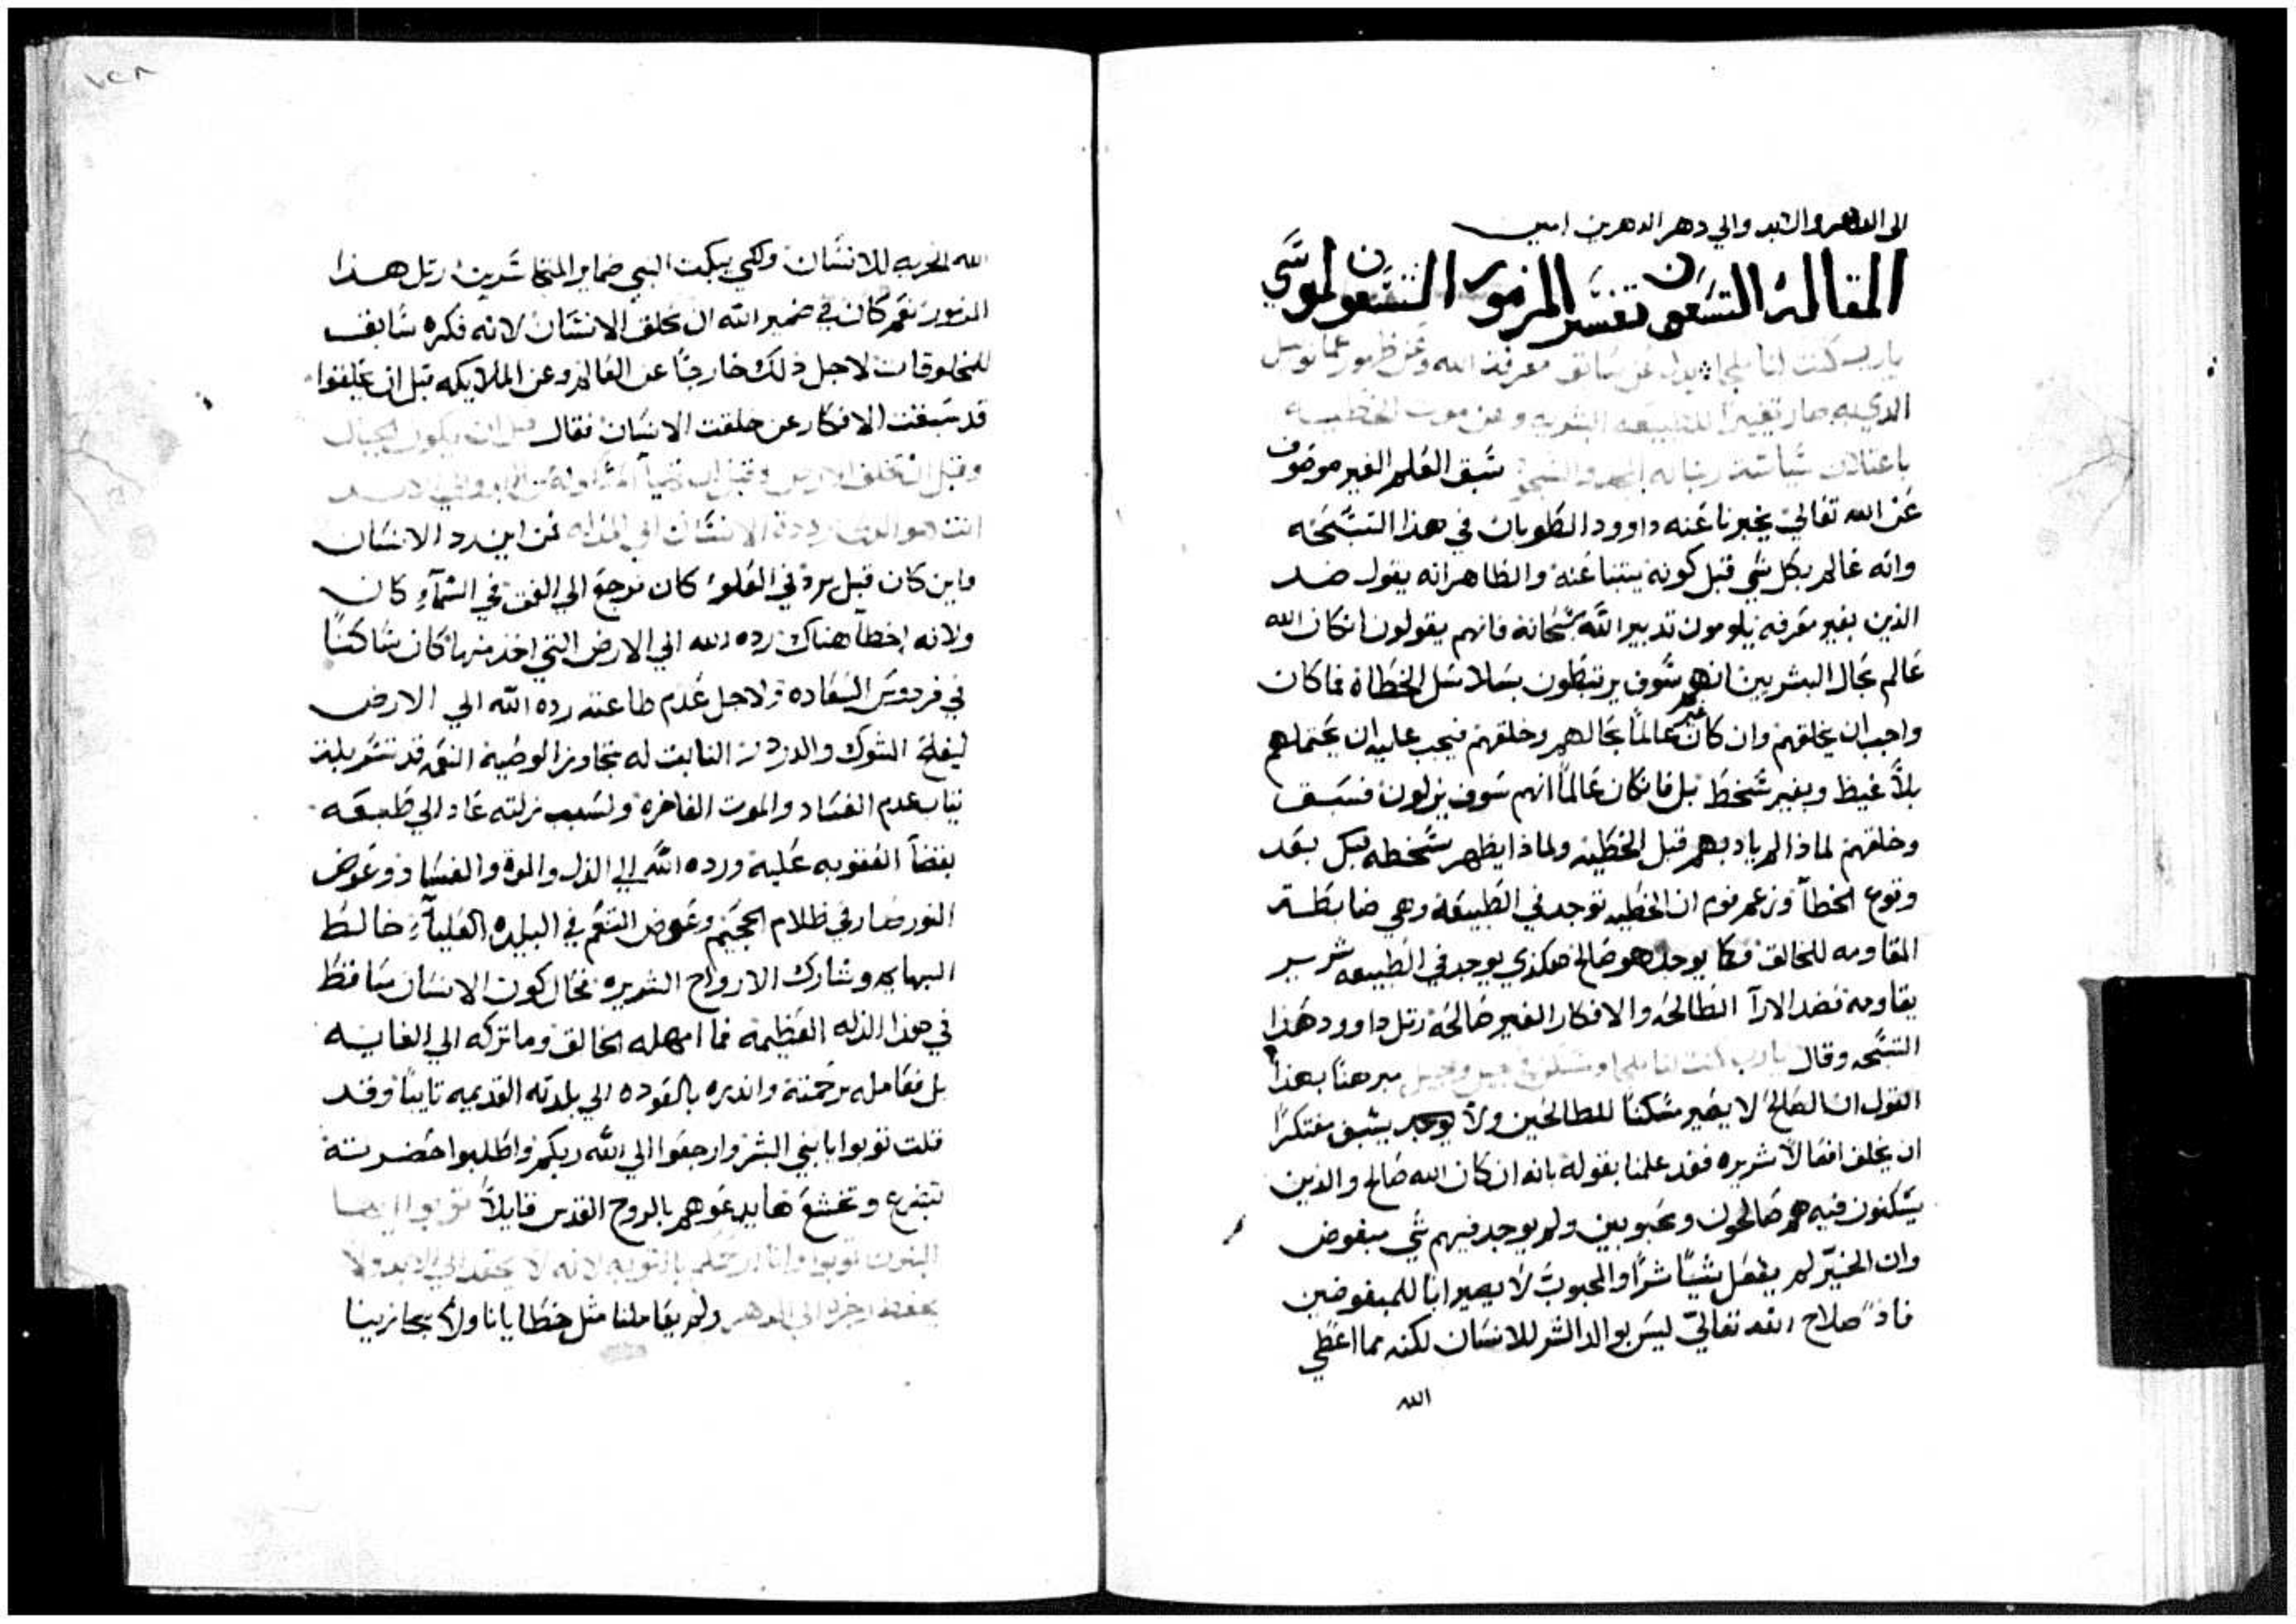 الى الدهر والابد والي دهر الداهرين امين
المقالة التسعون تفسير المزمور التسعون لموسي
يارب كنت لنا ملجا يدل عن سابق معرفة الله وعن ظهور عمانوييل
الذي به صار تغييرا للطبيعه البشريه وعن موت الخطيه
باعتلان سياسة ربنا له المجد والتسبيح سبق العلم الغير موصوف
عن الله تعالي يخبرنا عنه داوود الطوبان في هذا التسبحه
وانه عالم بكل شي قبل كونه ينبينا عنه والظاهر انه يقول ضد
الذين بغير معرفه يلومون تدبير الله سبحانه فانهم يقولون انكان الله
عالم بحال البشريين انهم سوف يرتبطون بسلاسل الخطاة فما كان
واجب ان يخلقهم وان كان غير عالما بحالهم وخلقهم فيجب عليه ان يحتملهم
بلا غيظ وبغير سخط بل فانكان عالما انهم سوف يزلون فسبق
وخلقهم لماذا لم يادبهم قبل الخطيه ولماذا يظهر سخطه لكل بعد
وقوع الخطا وزعم قوم ان الخطيه توجد في الطبيعة وهي ضابطة
المقاومه للخالق فكما يوجد هو صالح هكذي يوجد في الطبيعه شرير
يقاومه فضد الارآ الطالحه والافكار الغير صالحه رتل داوود هذا
التسبحه وقال يارب كنت لنا ملجا ومسكن في جيل وجيل مبرهنا بهذا
القول ان الصالح لا يصير مسكنا للطالحين ولا يوجد يسبق مفتكرا
ان يخلق افعالا شريره فقد علمنا بقوله بانه ان كان الله صالح والذين
يسكنون فيه هم صالحون ومحبوبين ولم يوجد فيهم شي مبغوض
وان الخير لم يفعل شيا شرا والمحبوب لا يصير ابا للمبغوضين
فاذا صلاح الله تعالي ليس بوالد الشر للانسان لكنه مما اعطي
الله
الله الحريه للانسان ولكي يبكت النبي ضماير المتجاسرين رتل هذا
المزمور نعم كان في ضمير الله ان يخلق الانسان لانه فكره سابق
للمخلوقات لاجل ذلك خارجا عن العالم وعن الملايكه قبل ان يخلقوا
قد سبقت الافكار عن خلقت الانسان فقال قبل ان يكون الجبال
وقبل ان تخلق الارض وقبل ان
انت هو الذي رددة الانسان الي المذله فمن اين رد الانسان
واين كان قبل رده في العلو كان موجع الي العمق في السمآء كان
ولانه اخطا هناك رده الله الي الارض التي اخذ منها كان ساكنا
في فردوس السعاده ولاجل عدم طاعته رده الله الي الارض
ليفلح الشوك والدردر النابت له بتجاوز الوصية التي قد تسربلت
ثياب عدم الفساد والموت الفاخره ولسبب زلته عاد الي طبيعه
بقضآ العقوبه عليه ورده الله الي الذل والموة والفساد وعوض
النور صار في ظلام الجحيم وعوض التنعم في البلده العليآء خالط
البهايم وشارك الارواح الشريره فحال كون الانسان ساقط
في هذا الذله العظيمه فما امهله الخالق وما تركه الي الغايه
بل فعامله برحمته وانذره بالعوده الي بلدته القديمه تايبا وقد
قلت توبوا يا بني البشر وارجعوا الي الله ربكم واطلبوا حضرته
بتضرع وتخشع ها يدعوهم بالروح القدس قايلا توبوا ايها
البنون توبوا وانا ارحمكم بالتوبه لانه لا يحقد الي الابد ولا
يحفظ رجزه الي الدهر ولم يعاملنا مثل خطايانا ولا يجازينا